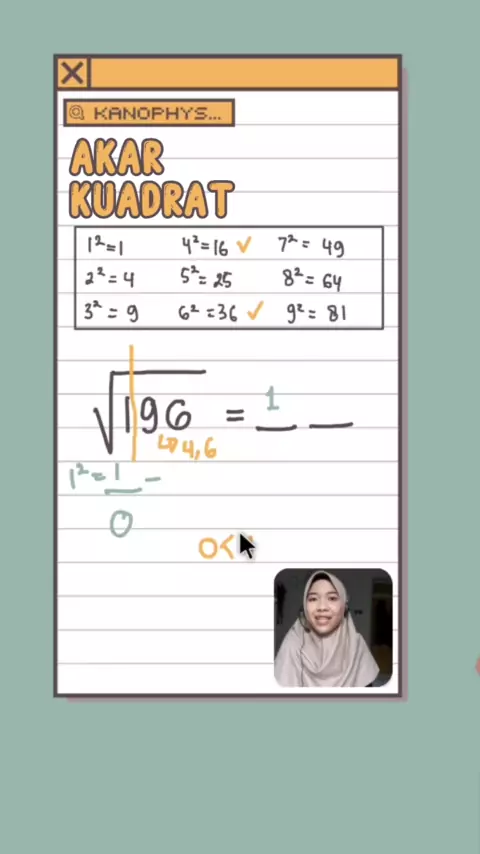 KANOPHYS...
AKAR
KUADRAT
1²=1 4²=16 ✓ 7²= 49
2²=4 5²=25 8²= 64
3²=9 6²=36 ✓ 9²= 81
√196 = 1 _ _
↳ 4,6
1² = 1 -
0
0<